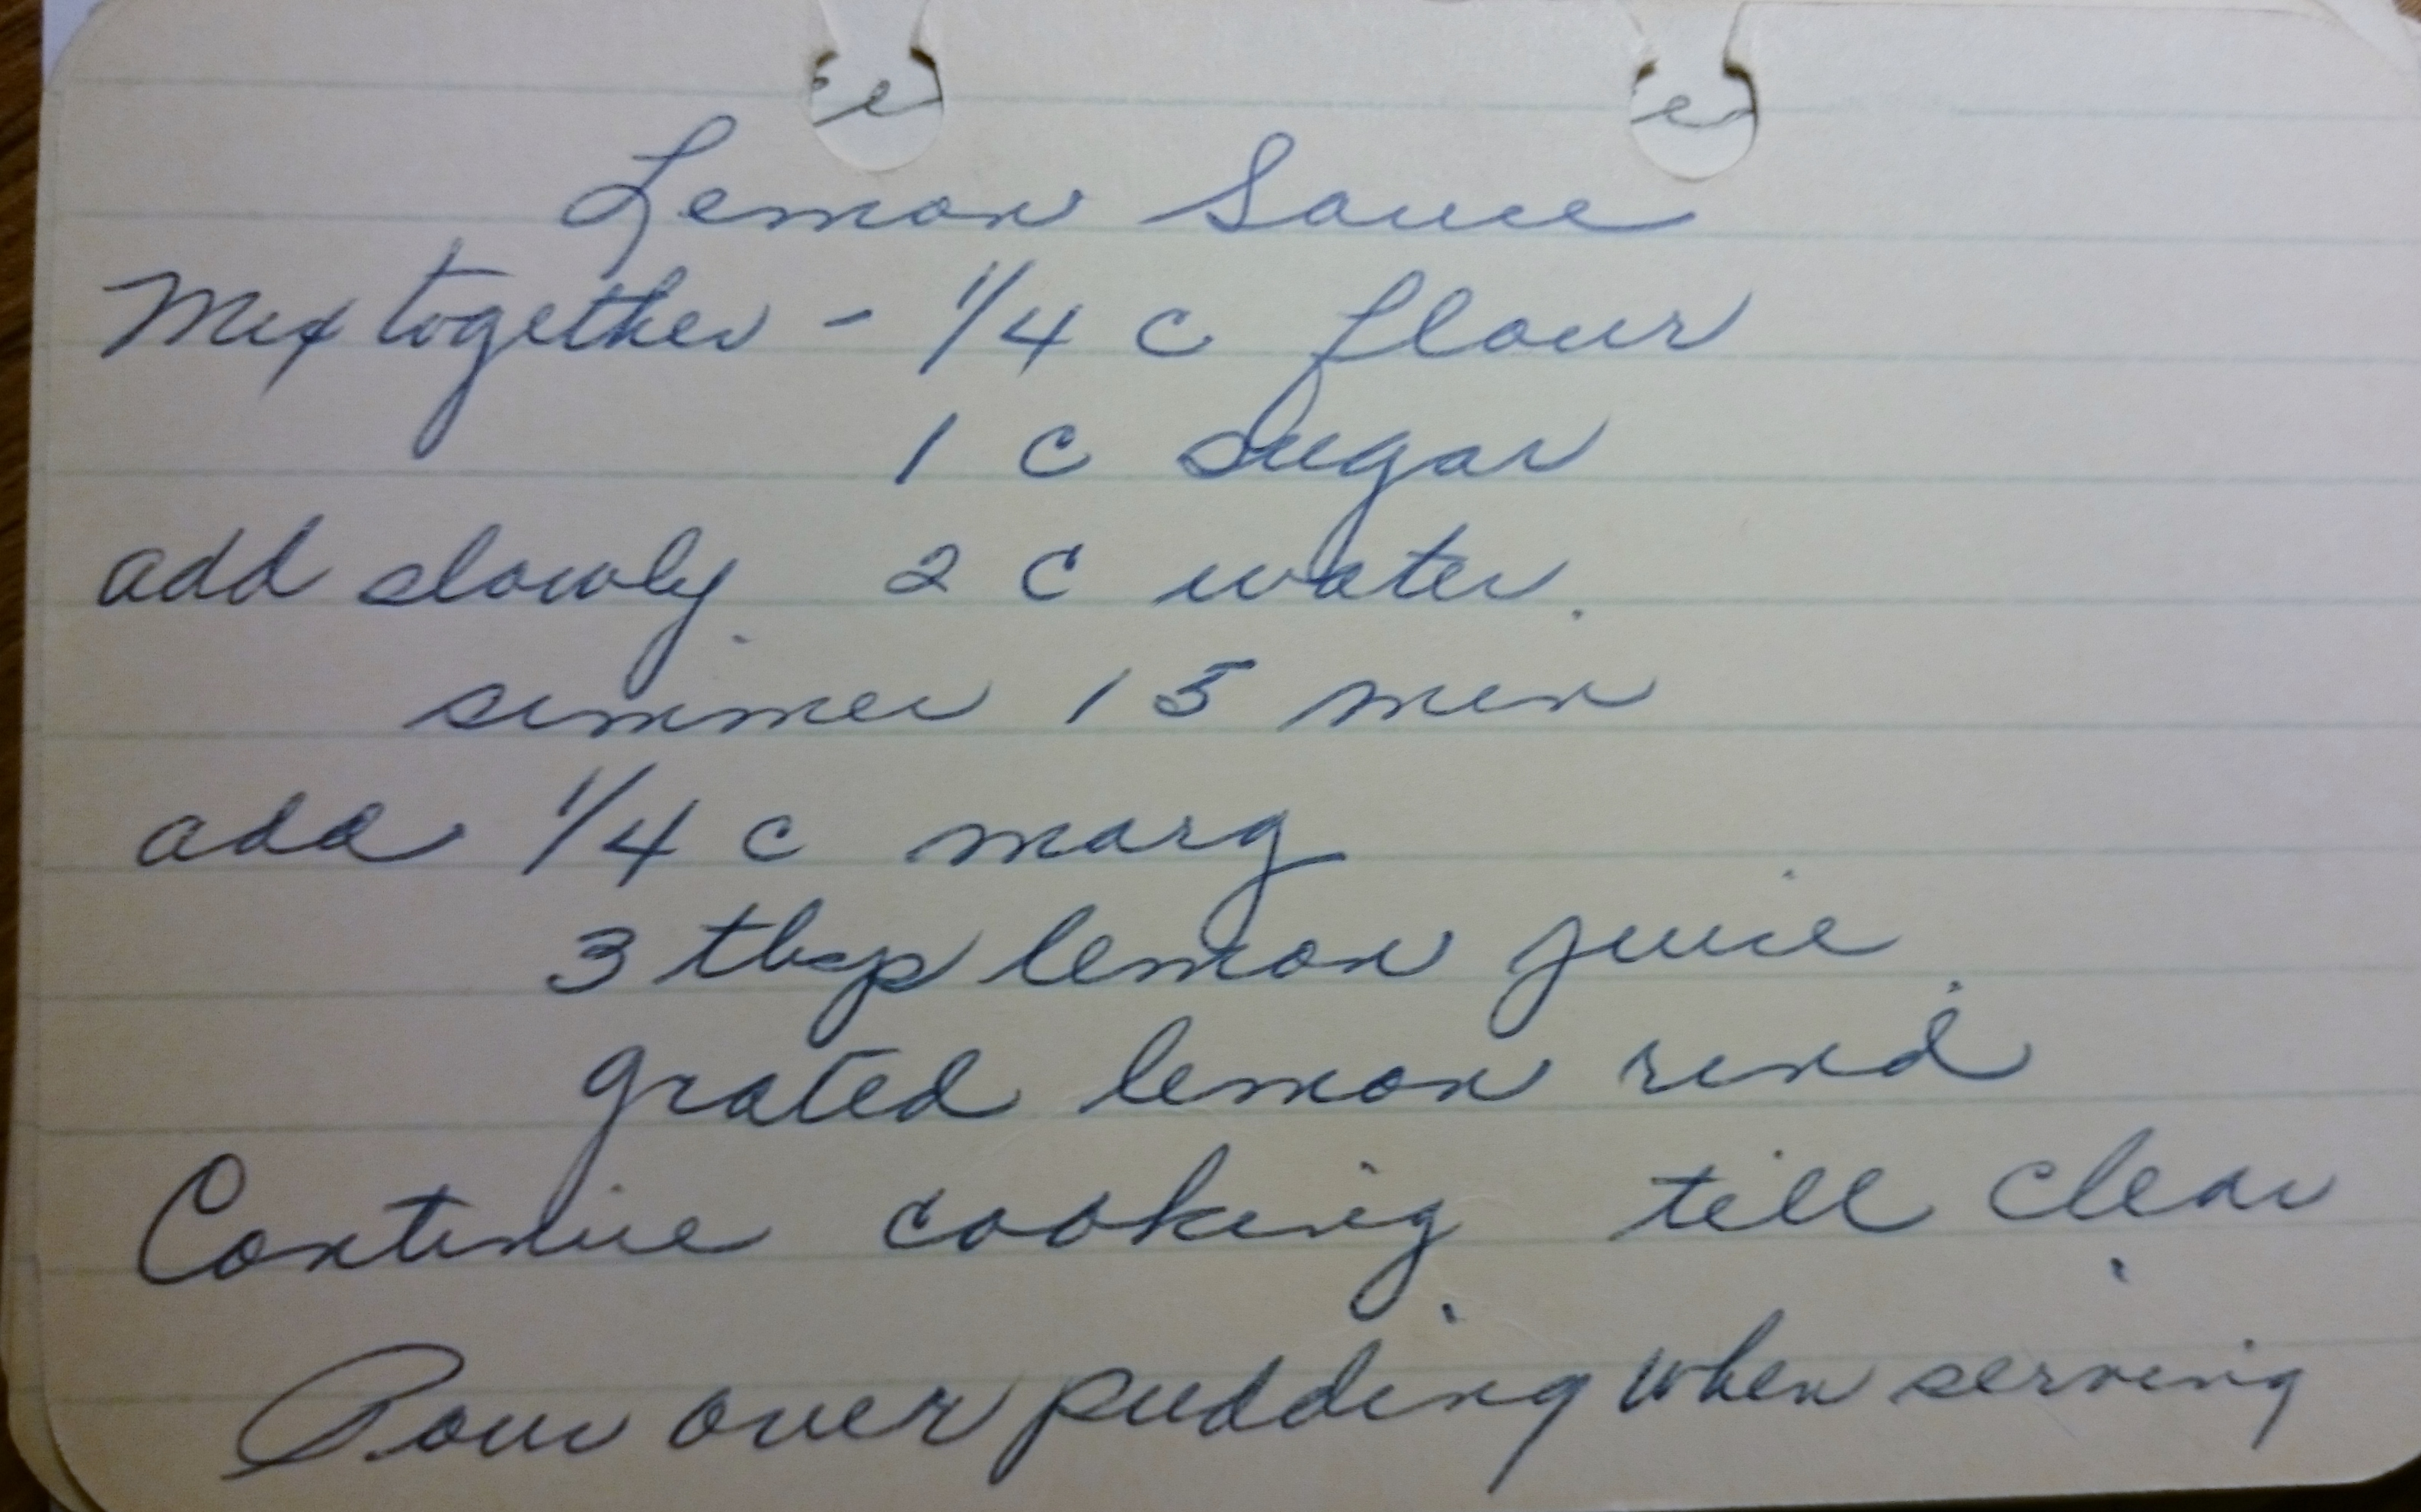 Lemon Sauce
Mix together - 1/4 c flour
1 c sugar
add slowly 2 c water.
simmer 15 min
add 1/4 c marg
3 tbsp lemon juice
grated lemon rind
Continue cooking till clear
Pour over pudding when serving